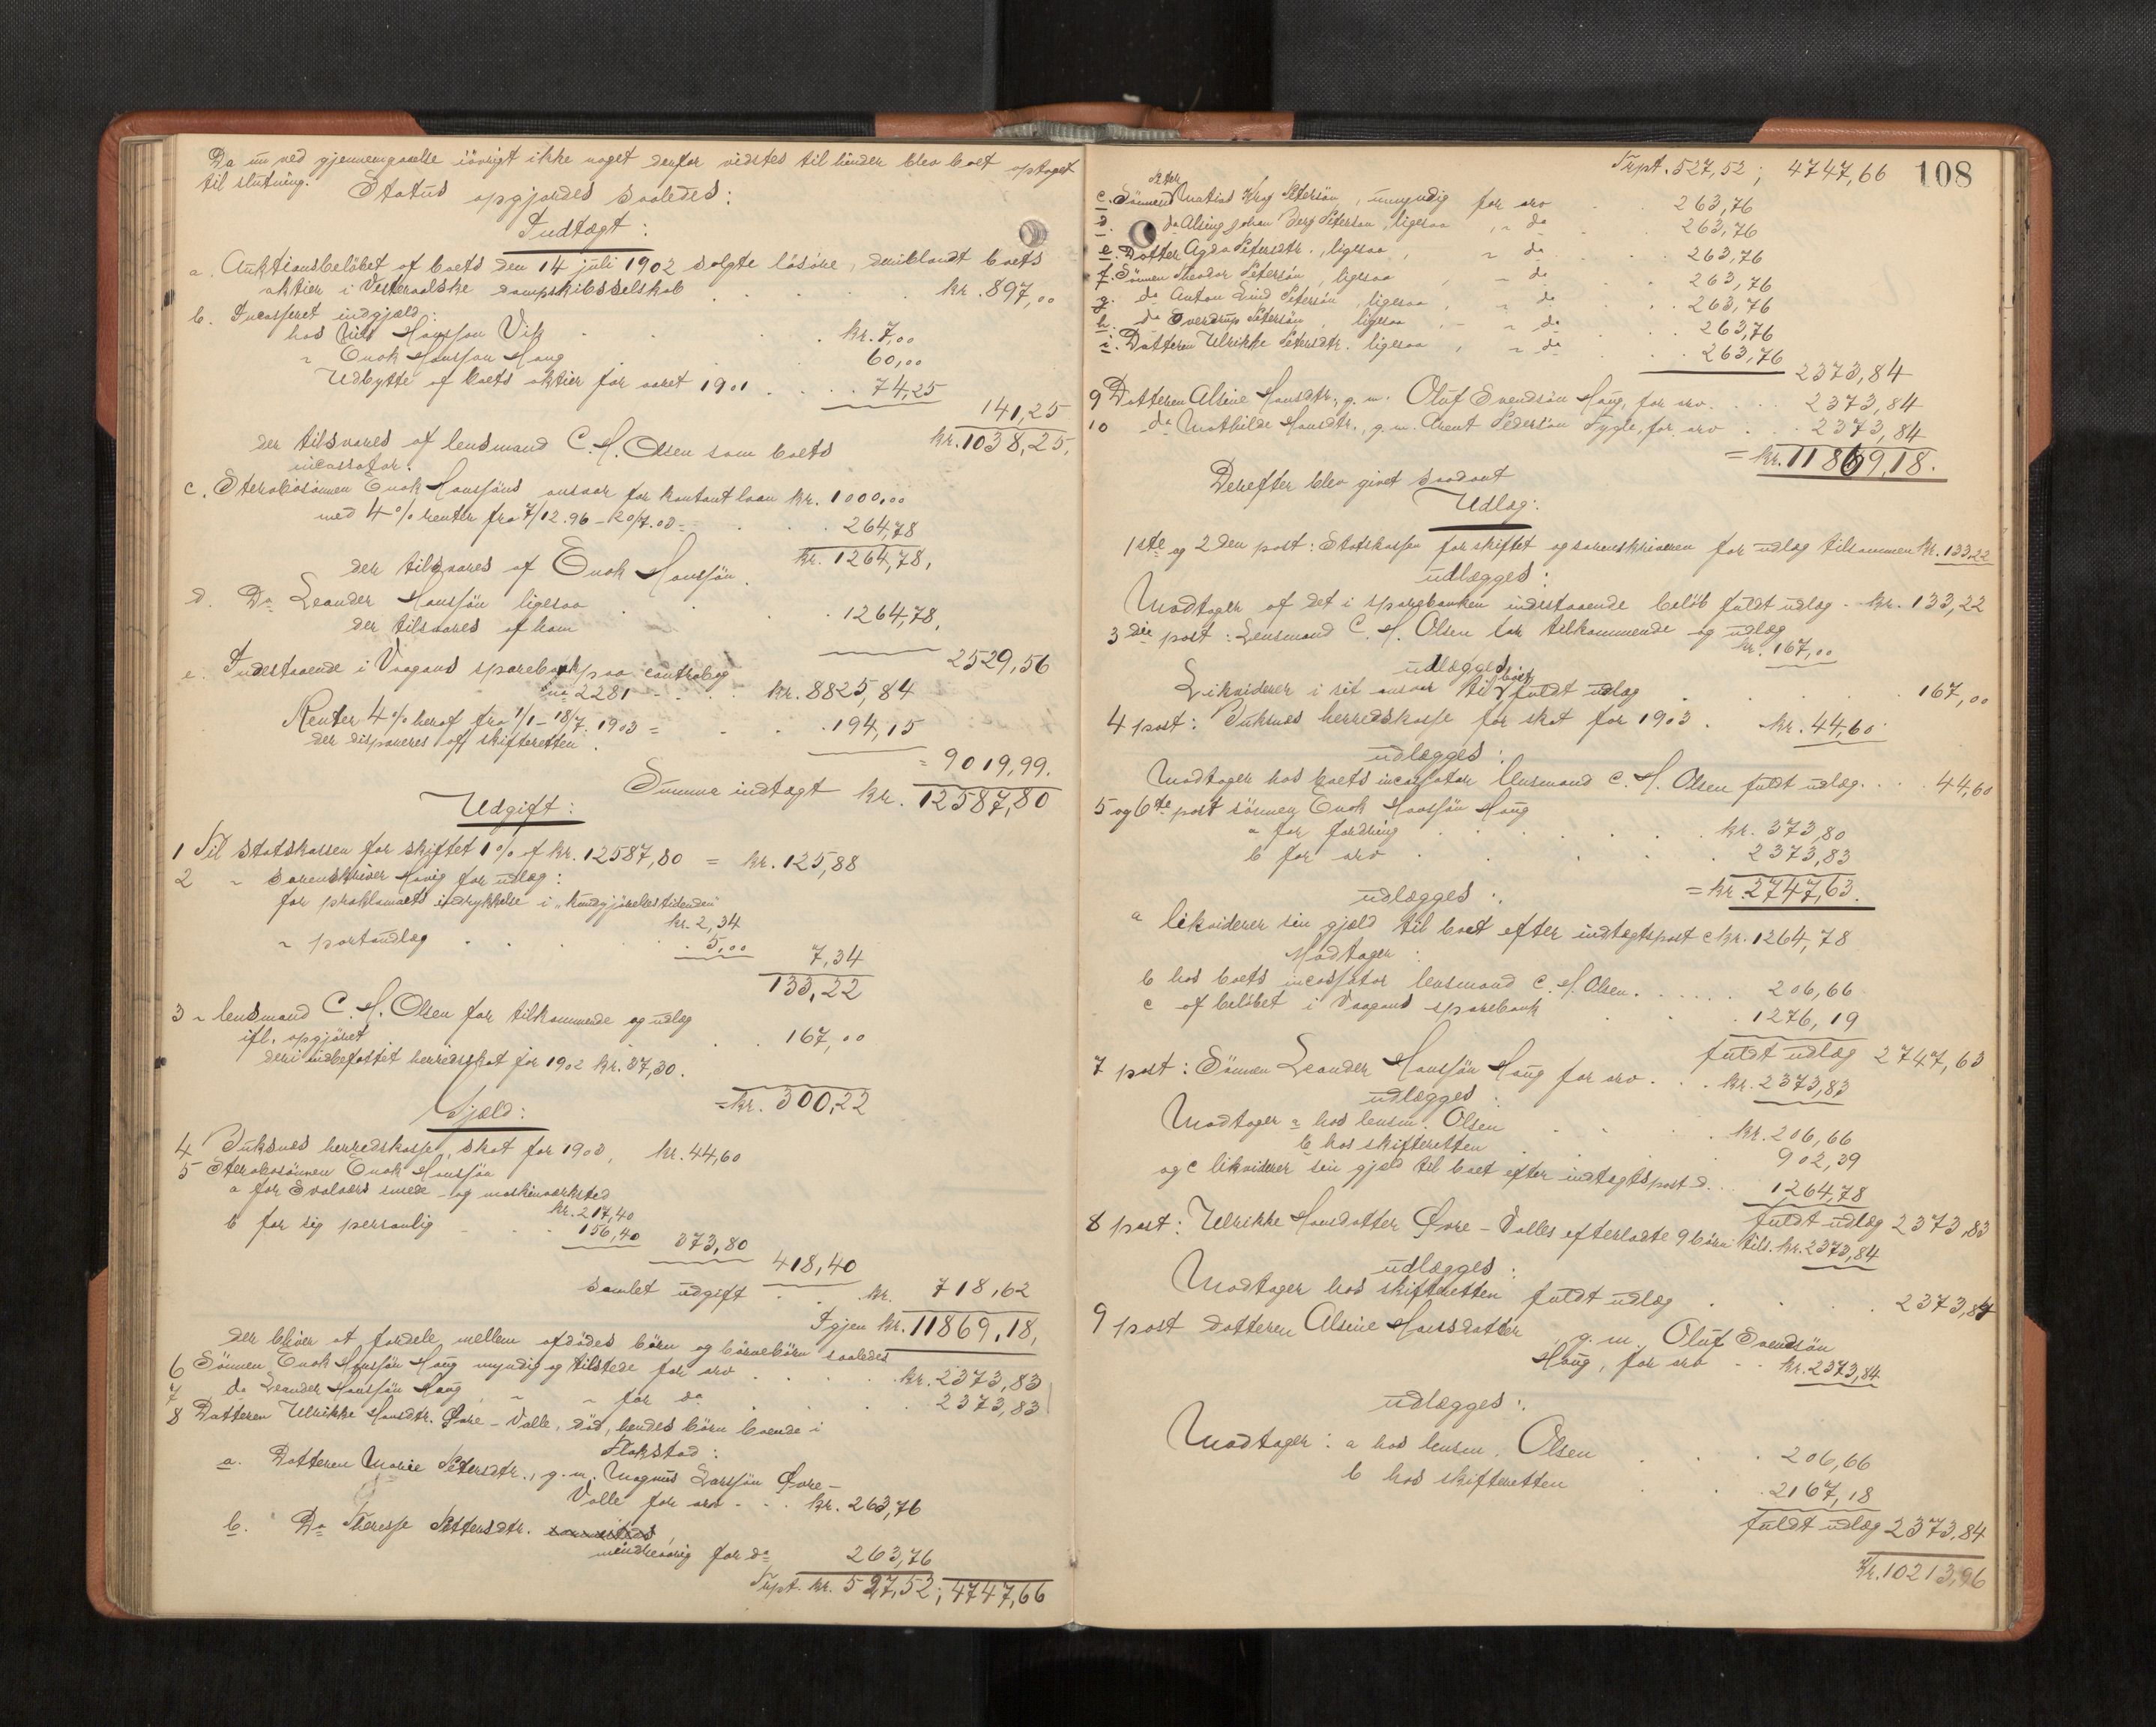 Da nu ved gjennemgaaelse iövrigt ikke noget derfor vidstes til hinder blev boet optaget
til slutning.
Status opgjordes saaledes:
Indtægt:
a. Auktionsbelöbet af boets den 14 juli 1902 solgte lösöre, deriblandt boets
aktier i Vesteraalske dampskibsselskab . . . kr. 897,00
b. Incasseret indgjæld:
hos Nils Hansson Vik . . . kr. 7,00
" Enok Hansson Haug 60,00
Udbytte af boets aktier for aaret 1901 . . . 74,25
141,25
der tilsvares af lensmand C. H. Olsen som boets kr. 1038,25,
incassator.
c. Sterobosönnen Enok Hanssöns ansvar for kontant laan kr. 1000,00
med 4% renter fra 7/12.96 – 20/7.03 = . . 264,78
kr. 1264,78,
der tilsvares af Enok Hanssön.
d. Do Leander Hanssön ligesaa . . 1264,78,
der tilsvares af ham
2529,56
e. Indestaaende i Vaagans sparebank paa contrabog
no 2281 - . . kr. 8825,84
Renter 4% heraf fra 1/1 – 18/7. 1903 = . . 194,15
der disponeres af skifteretten.
= 9019,99.
Summa indtægt kr. 12587,80
Udgift:
1 Til Statskassen for skiftet 1% af kr. 12587,80 = kr. 125,88
2 " Sorenskriver Havig for udlæg:
for proklamaets indrykkelse i "Kundgjörelsestidenden"
kr. 2,34
" portoudlæg . . . 5,00
7,34
133,22
3 " lensmand C. H. Olsen for tilkommende og udlæg
ifl. opgjöret . . 167,00
deri indbefattet herredsskat for 1902 kr. 37,30.
= kr. 300,22
Gjæld:
4 Buksnes herredskasse, skat for 1903, kr. 44,60
5 Sterobosönnen Enok Hanssön
a for Svolværs smede- og maskinværksted
kr. 217,40
b for sig personlig . . 156,40
373,80
418,40
samlet udgift . . kr. 718,62
Igjen kr. 11869,18,
der bliver at fordele mellem afdödes börn og börnebörn saaledes
6 Sönnen Enok Hanssön Haug myndig og tilstede for arv . . . kr. 2373,83
7 do Leander Hanssön Haug, " " for do . . 2373,83
8 Datteren Ulrikke Hansdtr. Övre-Valle, död, hendes börn boende i
Flakstad:
a. Datteren Marie Petersdtr., g. m. Magnus Larssön Övre-
Valle for arv - . . kr. 263,76
b. Do Theresse Pettersdtr.
mindreaarig for do 263,76
Trpt. kr. 527,52; 4747,66
Trpt. 527,52; 4747,66 108
Peter
c. Sönnen Matias Krog Petersön, umyndig for arv . . 263,76
d. do Alsing Johan Berg Peterson, ligesaa, " do . 263,76
e. Datter Agda Petersdtr., ligesaa, " do . . . 263,76
f. Sönnen Theodor Petersön, ligesaa " do . . 263,76
g. do Anton Lind Petersön, ligesaa, " do . . 263,76
h. do Sverdrup Petersön, ligesaa, " do 263,76
i. Datteren Ulrikke Petersdtr. ligesaa, " do . . 263,76
2373,84
9 Datteren Alsine Hansdtr., g. m. Oluf Svendsön Haug, for arv. . . 2373,84
10 do Mathilde Hansdtr., g. m. Arent Pedersön Tygle, for arv . . . 2373,84
= kr. 11869,18.
Derefter blev givet saadant
Udlæg:
1ste og 2den post: Statskassen for skiftet og sorenskriveren for udlæg tilsammen kr. 133,22
udlægges:
Modtager af det i sparebanken indestaaende belöb fuldt udlæg. kr. 133,22
3die post: Lensmand C. H. Olsen for tilkommende og udlæg
kr. 167,00
udlægges
Likviderer i sit ansvar til boet fuldt udlæg . . . 167,00
4 post: Buksnes herredskasse for skat for 1903 . kr. 44,60
udlægges:
Modtager hos boets incassator lensmand C. H. Olsen fuldt udlæg . . . 44,60
5 og 6te post sönnen Enok Hanssön Haug
a for fordring . . . kr. 373,80
b for arv . . . 2373,83
= kr. 2747,63.
udlægges:
a likviderer sin gjæld til boet efter indtægtspost c kr. 1264,78
Modtager:
b hos boets incassator lensmand C. H. Olsen. . . . . 206,66
c af belöbet i Vaagans sparebank . . 1276,19
fuldt udlæg 2747,63
7 post: Sönnen Leander Hanssön Haug for arv . . . kr. 2373,83
udlægges:
Modtager a hos lensm. Olsen . . . kr. 206,66
b hos skifteretten . . . 902,39
og c likviderer sin gjæld til boet efter indtægtspost d. . 1264,78
fuldt udlæg 2373,83
8 post: Ulrikke Hansdatter Övre-Valles efterladte 9 börn tils. kr. 2373,84
udlægges:
Modtager hos skifteretten fuldt udlæg . . . . 2373,84
9 post datteren Alsine Hansdatter, g. m. Oluf Svendsön
Haug, for arv . . kr. 2373,84
udlægges:
Modtager: a hos lensm. Olsen . . . 206,66
b hos skifteretten . . 2167,18
fuldt udlæg 2373,84
Kr. 10213,96